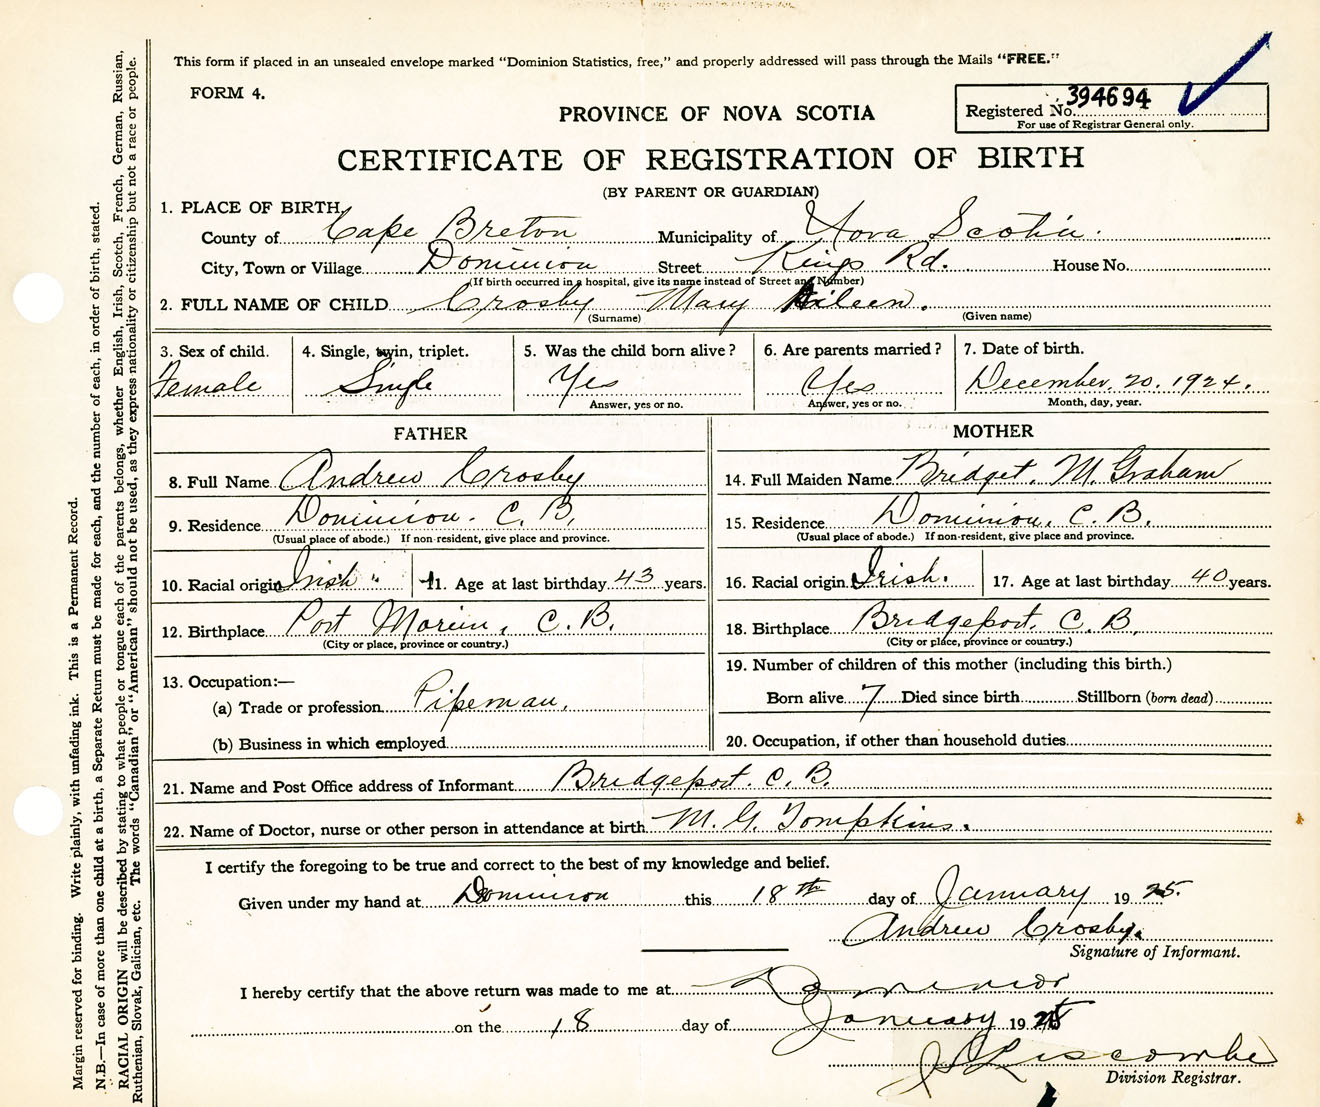 This form if placed in an unsealed envelope marked "Dominion Statistics, free," and properly addressed will pass through the Mails "FREE."
FORM 4.
Registered No. 394694
For use of Registrar General only.
PROVINCE OF NOVA SCOTIA
CERTIFICATE OF REGISTRATION OF BIRTH
(BY PARENT OR GUARDIAN)
1. PLACE OF BIRTH
County of Cape Breton Municipality of Nova Scotia.
City, Town or Village Dominion Street Kings Rd. House No.
(If birth occurred in a hospital, give its name instead of Street and Number)
2. FULL NAME OF CHILD Crosby Mary Aileen.
(Surname) (Given name)
3. Sex of child. 4. Single, twin, triplet. 5. Was the child born alive? 6. Are parents married? 7. Date of birth.
Female Single Yes Yes December. 20. 1924.
Answer, yes or no. Answer, yes or no. Month, day, year.
FATHER MOTHER
8. Full Name Andrew Crosby 14. Full Maiden Name Bridget. M. Graham
9. Residence Dominion. C. B. 15. Residence Dominion. C. B.
(Usual place of abode.) If non-resident, give place and province. (Usual place of abode.) If non-resident, give place and province.
10. Racial origin Irish 11. Age at last birthday 43 years. 16. Racial origin Irish. 17. Age at last birthday 40 years.
12. Birthplace Port Morien, C. B. 18. Birthplace Bridgeport. C. B.
(City or place, province or country.) (City or place, province or country.)
13. Occupation:— 19. Number of children of this mother (including this birth.)
(a) Trade or profession Pipeman. Born alive 7 Died since birth Stillborn (born dead)
(b) Business in which employed 20. Occupation, if other than household duties
21. Name and Post Office address of Informant Bridgeport. C. B.
22. Name of Doctor, nurse or other person in attendance at birth M. G. Tompkins.
I certify the foregoing to be true and correct to the best of my knowledge and belief.
Given under my hand at Dominion this 18th day of January 1925.
Andrew Crosby.
Signature of Informant.
I hereby certify that the above return was made to me at Dominion
on the 18 day of January 1925
J S Liscombe
Division Registrar.
Margin reserved for binding. Write plainly, with unfading ink. This is a Permanent Record.
N.B.—In case of more than one child at a birth, a Separate Return must be made for each, and the number of each, in order of birth, stated.
RACIAL ORIGIN will be described by stating to what people or tongue each of the parents belongs, whether English, Irish, Scotch, French, German, Russian,
Ruthenian, Slovak, Galician, etc. The words "Canadian" or "American" should not be used, as they express nationality or citizenship but not a race or people.